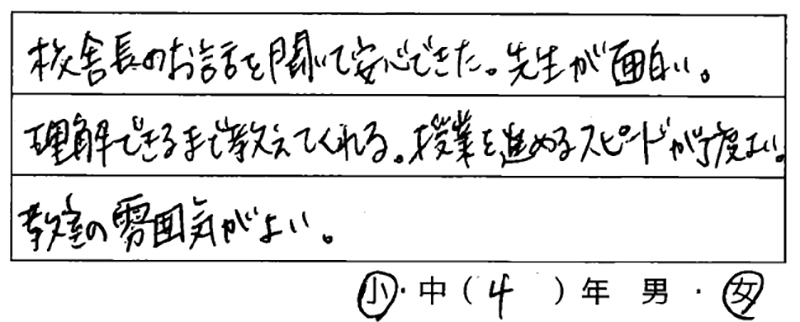 校舎長のお話を聞いて安心できた。先生が面白い。
理解できるまで教えてくれる。授業を進めるスピードが丁度よい。
教室の雰囲気がよい。
小・中(4)年 男・女